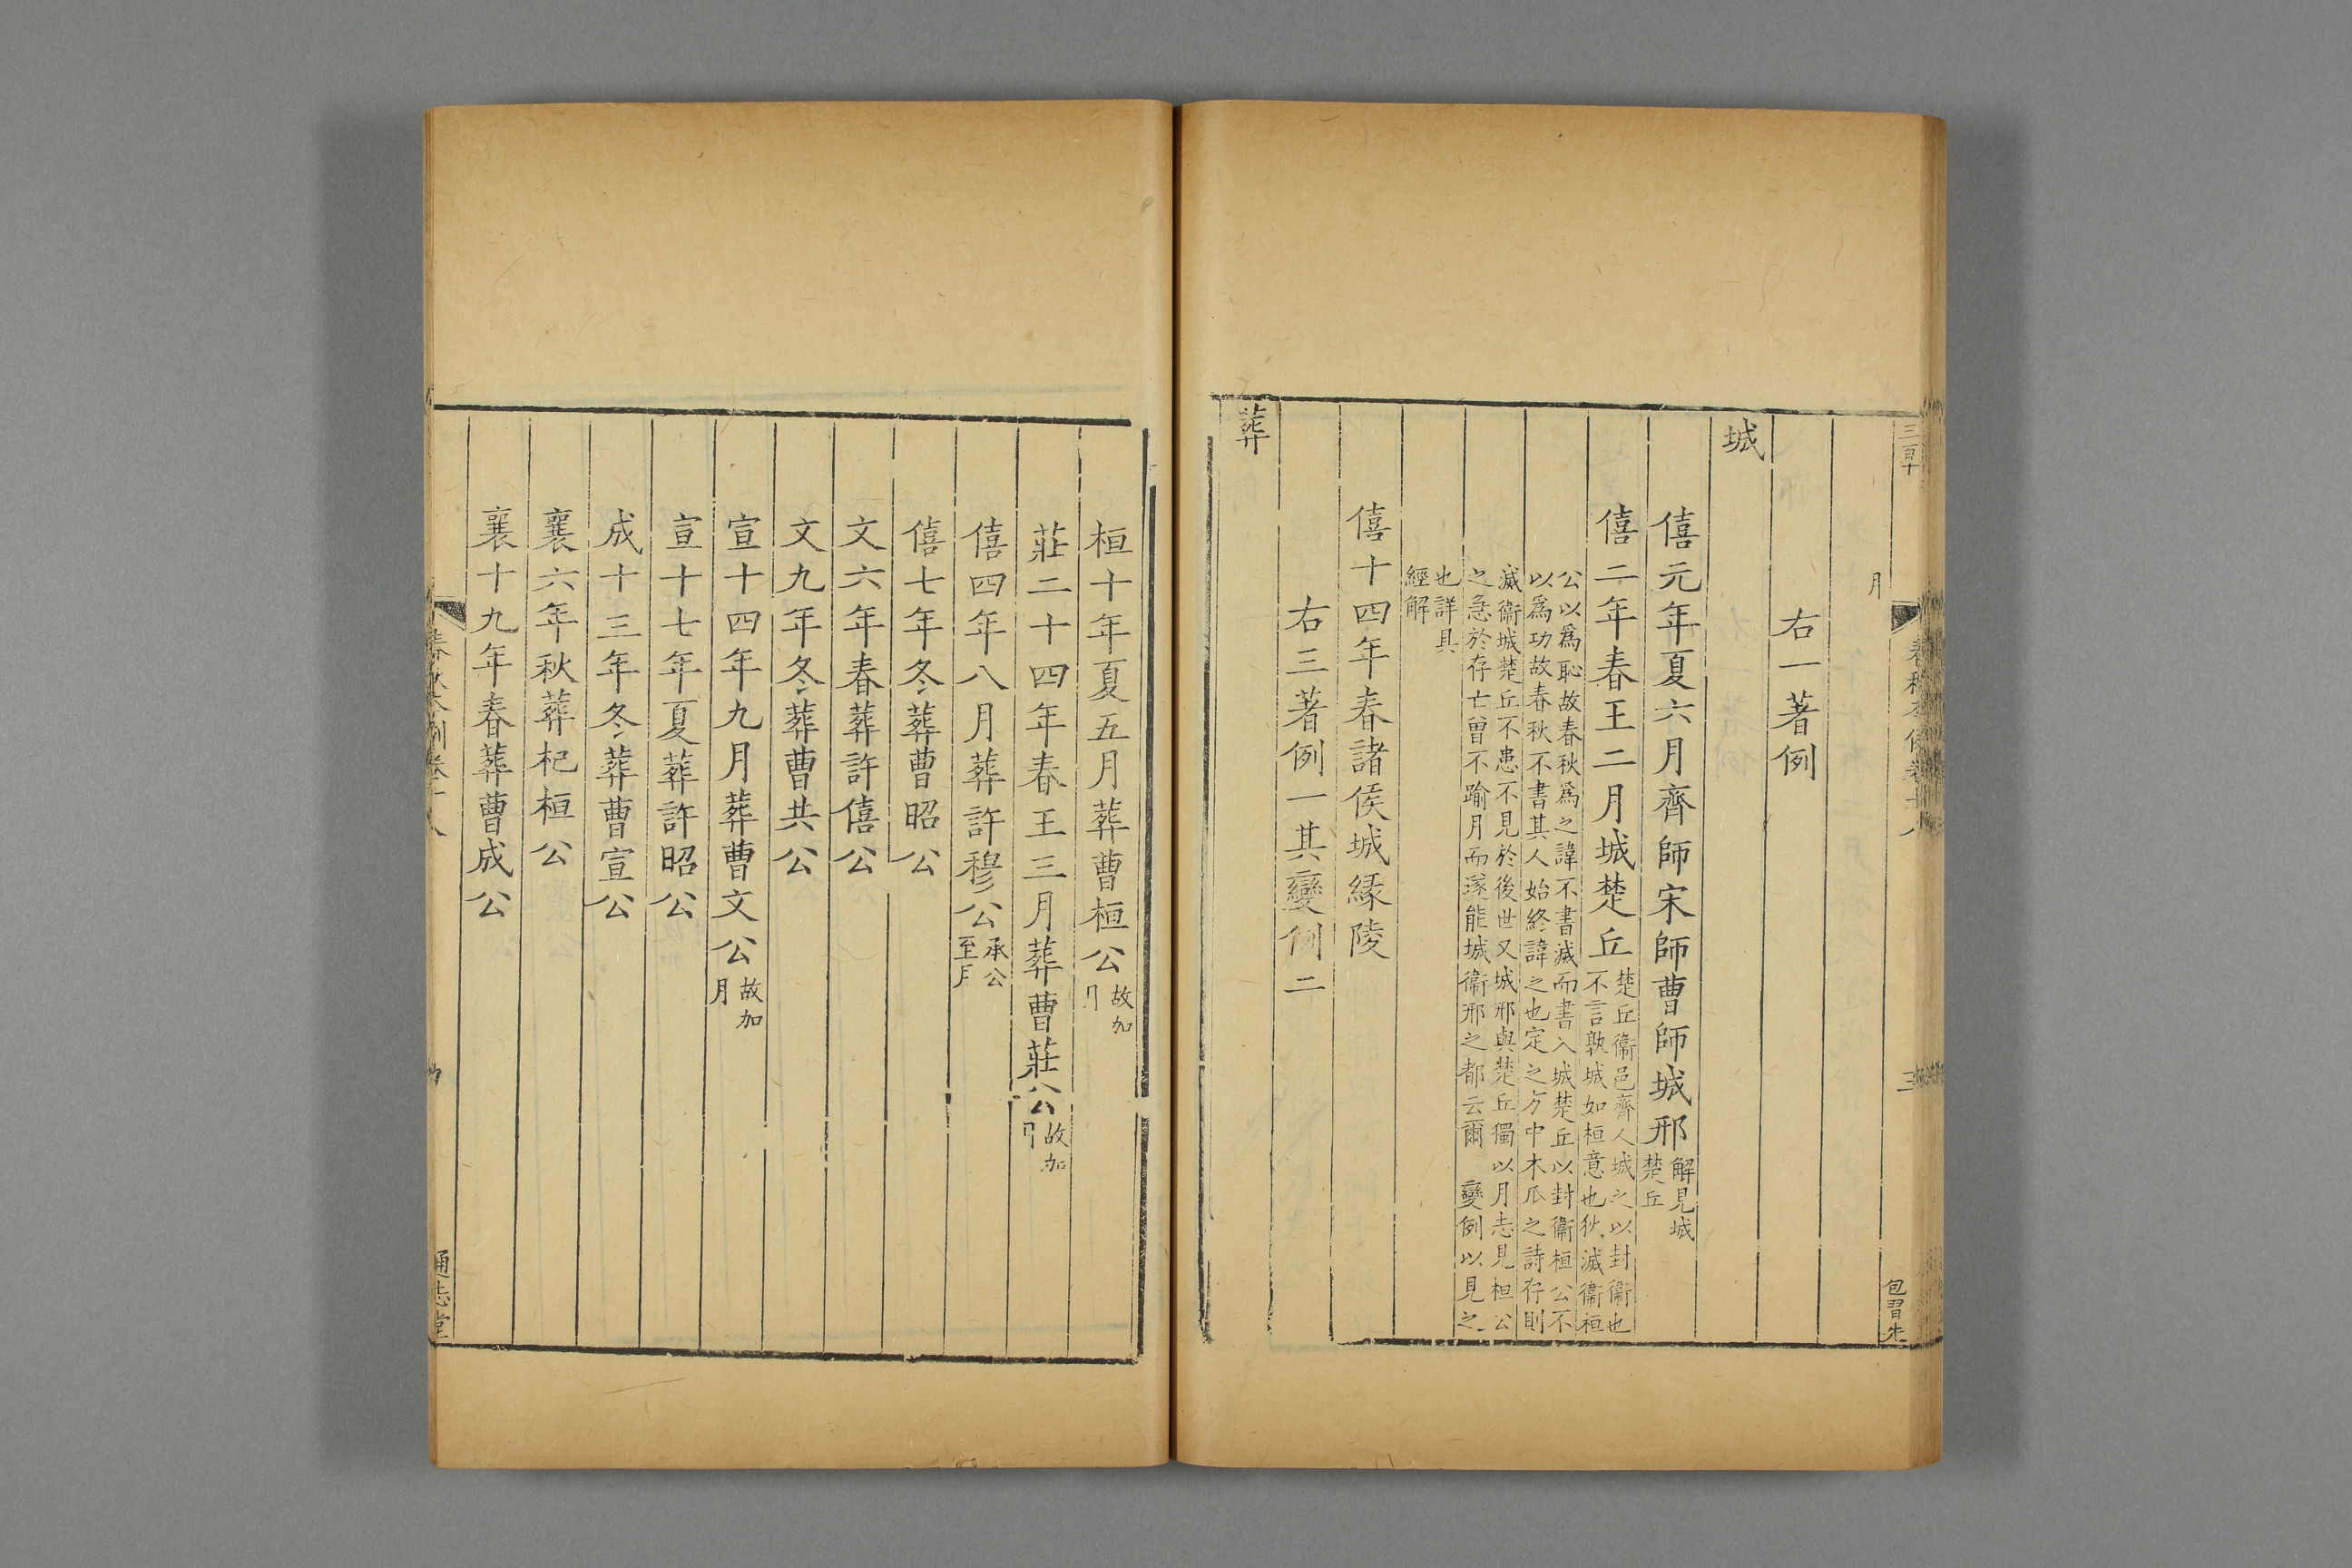 月
右一著例
城
僖元年夏六月齊師宋師曹師城邢解見城
楚丘
僖二年春王二月城楚丘楚丘衞邑齊人城之以封衞也
不言孰城如桓意也狄滅衞桓
公以爲恥故春秋爲之諱不書滅而書入城楚丘以封衞桓公不
以爲功故春秋不書其人始終諱之也定之方中木瓜之詩存則
滅衞城楚丘不患不見於後世又城邢與楚丘獨以月志見桓公
之急於存亡曾不踰月而遂能城衞邢之都云爾 變例以見之
也詳具
經解
僖十四年春諸侯城緣陵
右三著例一其變例二
葬
包習先
桓十年夏五月葬曹桓公故加
月
莊二十四年春王三月葬曹莊公故加
月
僖四年八月葬許穆公承公
至月
僖七年冬葬曹昭公
文六年春葬許僖公
文九年冬葬曹共公
宣十四年九月葬曹文公故加
月
宣十七年夏葬許昭公
成十三年冬葬曹宣公
襄六年秋葬杞桓公
襄十九年春葬曹成公
通志堂